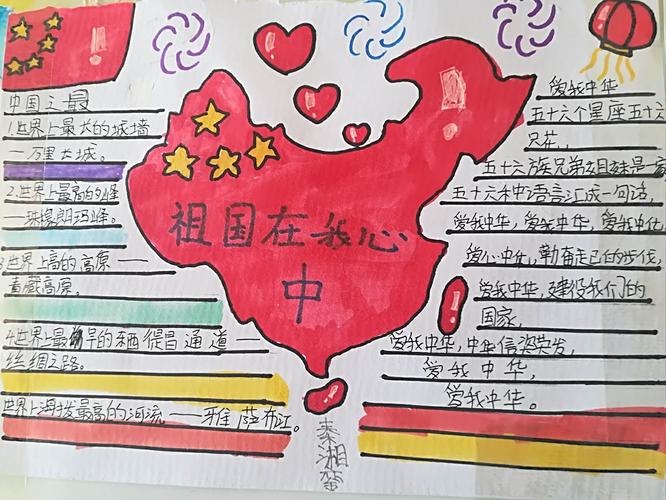 中国之最
1.世界上最长的城墙
—万里长城。
2.世界上最高的山峰
—珠穆朗玛峰。
世界上高的高原——
青藏高原。
4.世界上最早的 通道—
丝绸之路。
世界上海拔最高的河流——雅 布江。
祖国在我心
中
爱我中华
五十六个星座五十六
只花,
五十六族兄弟姐妹是一家
五十六种语言汇成一句话,
爱我中华,爱我中华,爱我中华,
爱我中华,建设我们的
国家,
爱我中华,中华
爱我中华,
爱我中华。
秦湘